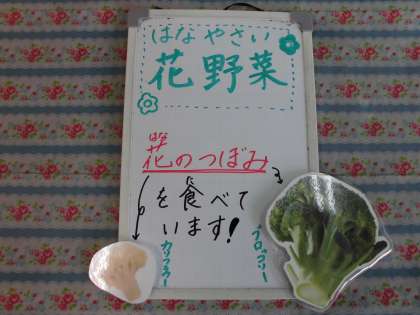 はなやさい
花野菜
花のつぼみ
を食べて
います!
カリフラワー
ブロッコリー